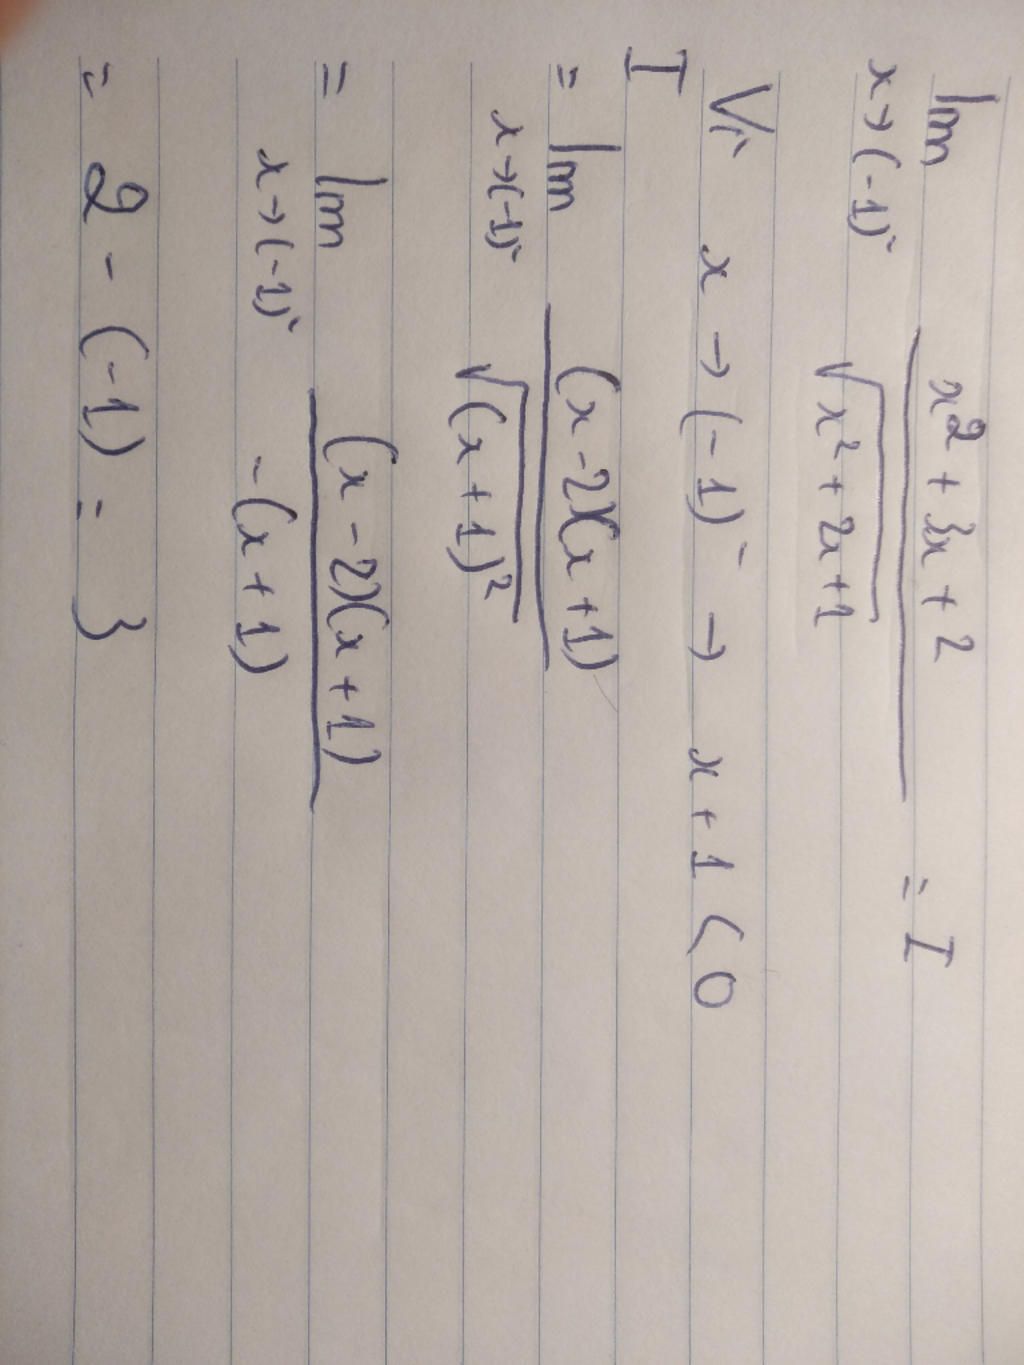 lim x→(-1)⁻ (x² + 3x + 2)/√(x² + 2x + 1) = I
Vì x → (-1)⁻ → x + 1 < 0
I = lim x→(-1)⁻ (x - 2)(x + 1)/√((x + 1)²)
= lim x→(-1)⁻ (x - 2)(x + 1)/-(x + 1)
= 2 - (-1) = 3